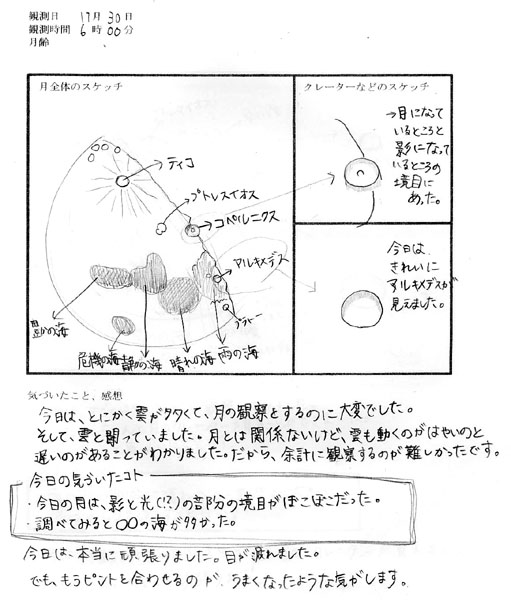 観測日 11月30日
観測時間 6時00分
月齢
月全体のスケッチ
ティコ
プトレスイオス
コペルニクス
アルキメデス
プラトー
豊かの海
危機の海
静かの海
晴れの海
雨の海
クレーターなどのスケッチ
→月になって
いるところと
影になって
いるところの
境目に
あった。
今日は
きれいに
アルキメデスが
見えました。
気づいたこと、感想
今日は、とにかく雲が多くて、月の観察をするのに大変でした。
そして、雲と闘っていました。月とは関係ないけど、雲も動くのがはやいのと
遅いのがあることがわかりました。だから、余計に観察するのが難しかったです。
今日の気づいたコト
・今日の月は、影と光(!?)の部分の境目がぼこぼこだった。
・調べてみると〇〇の海が多かった。
今日は、本当に頑張りました。目が疲れました。
でも、もうピントを合わせるのが、うまくなったような気がします。